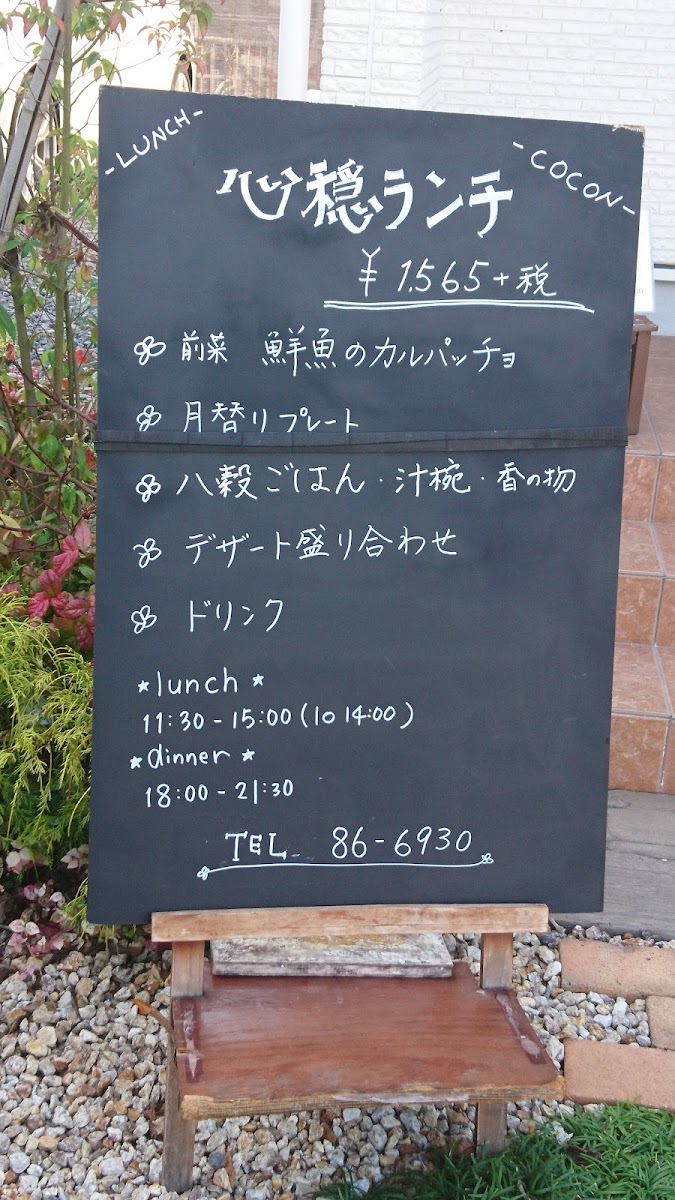 -LUNCH-
-COCON-
心穏ランチ
¥1,565+税
前菜 鮮魚のカルパッチョ
月替りプレート
八穀ごはん・汁椀・香の物
デザート盛り合わせ
ドリンク
★lunch★
11:30-15:00(lo 14:00)
★dinner★
18:00-21:30
TEL 86-6930